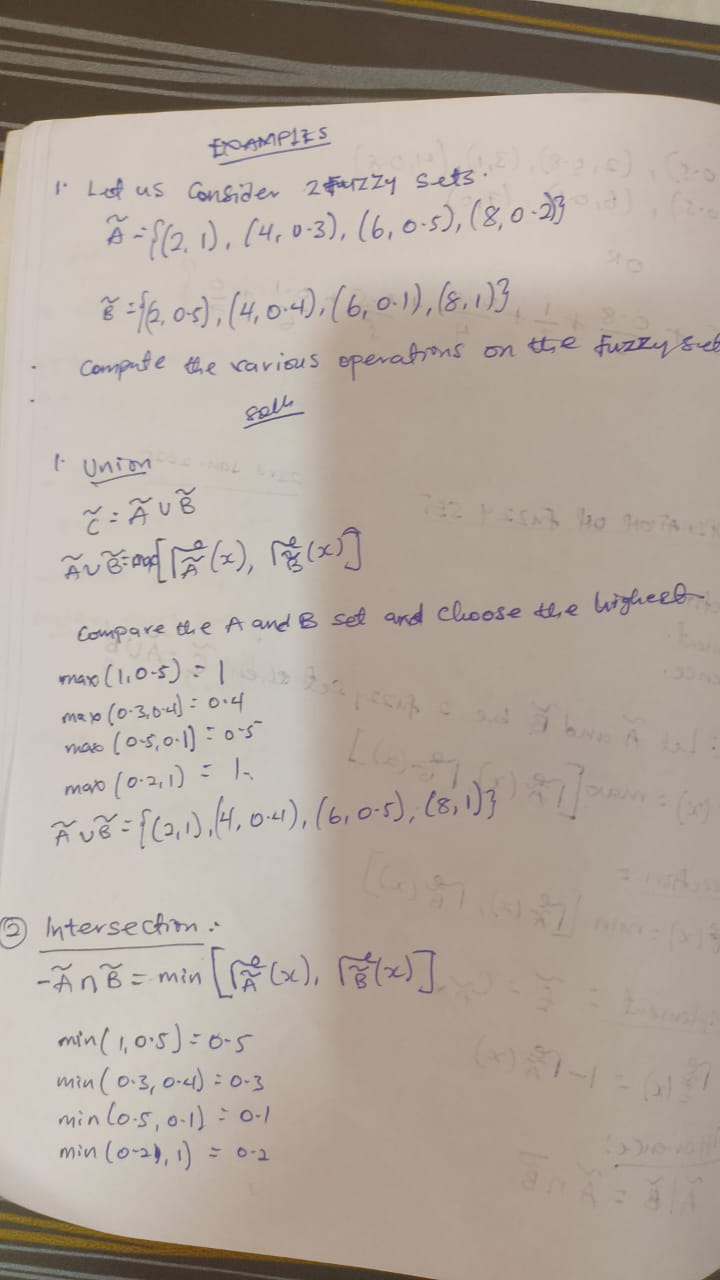 EXAMPLES
1. Let us consider 2 Fuzzy sets.
Ã = {(2, 1), (4, 0.3), (6, 0.5), (8, 0.2)}
B̃ = {(2, 0.5), (4, 0.4), (6, 0.1), (8, 1)}
Compute the various operations on the Fuzzy set
Soln
1. Union
C̃ = Ã ∪ B̃
Ã ∪ B̃ = max[Γ Ã (x), Γ B̃ (x)]
Compare the A and B set and choose the highest
max (1, 0.5) = 1
max (0.3, 0.4) = 0.4
max (0.5, 0.1) = 0.5
max (0.2, 1) = 1.
Ã ∪ B̃ = {(2, 1), (4, 0.4), (6, 0.5), (8, 1)}
② Intersection:
- Ã ∩ B̃ = min [Γ Ã (x), Γ B̃ (x)]
min (1, 0.5) = 0.5
min (0.3, 0.4) = 0.3
min (0.5, 0.1) = 0.1
min (0.2, 1) = 0.2